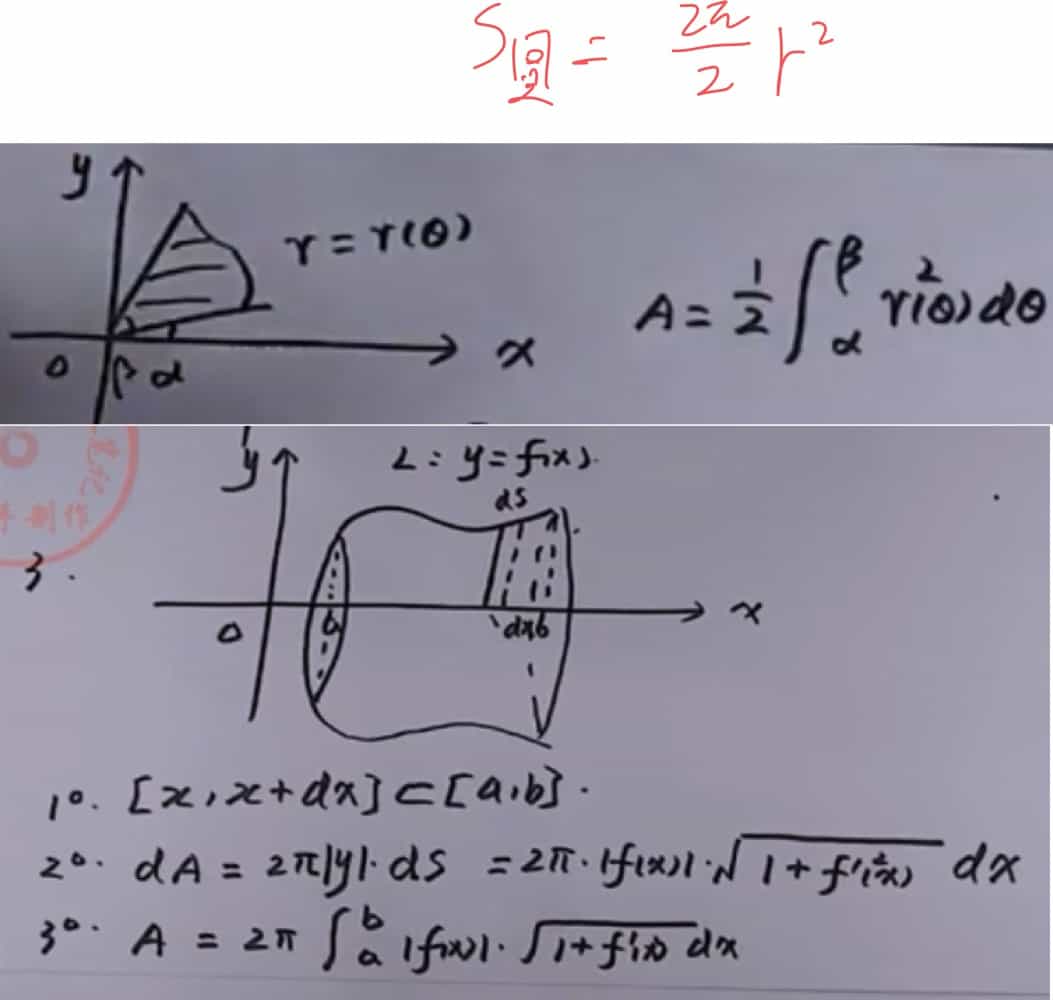 S圆 = 2π/2 r²
y
r = r(θ)
A = 1/2 ∫_α^β r²(θ) dθ
0 β α x
y L : y = f(x).
ds
3.
0 a dx b x
1°. [x, x+dx] ⊂ [a,b].
2°. dA = 2π|y|·ds = 2π·|f(x)|·√(1+f'²(x)) dx
3°. A = 2π ∫_a^b |f(x)|·√(1+f'²(x)) dx
制作